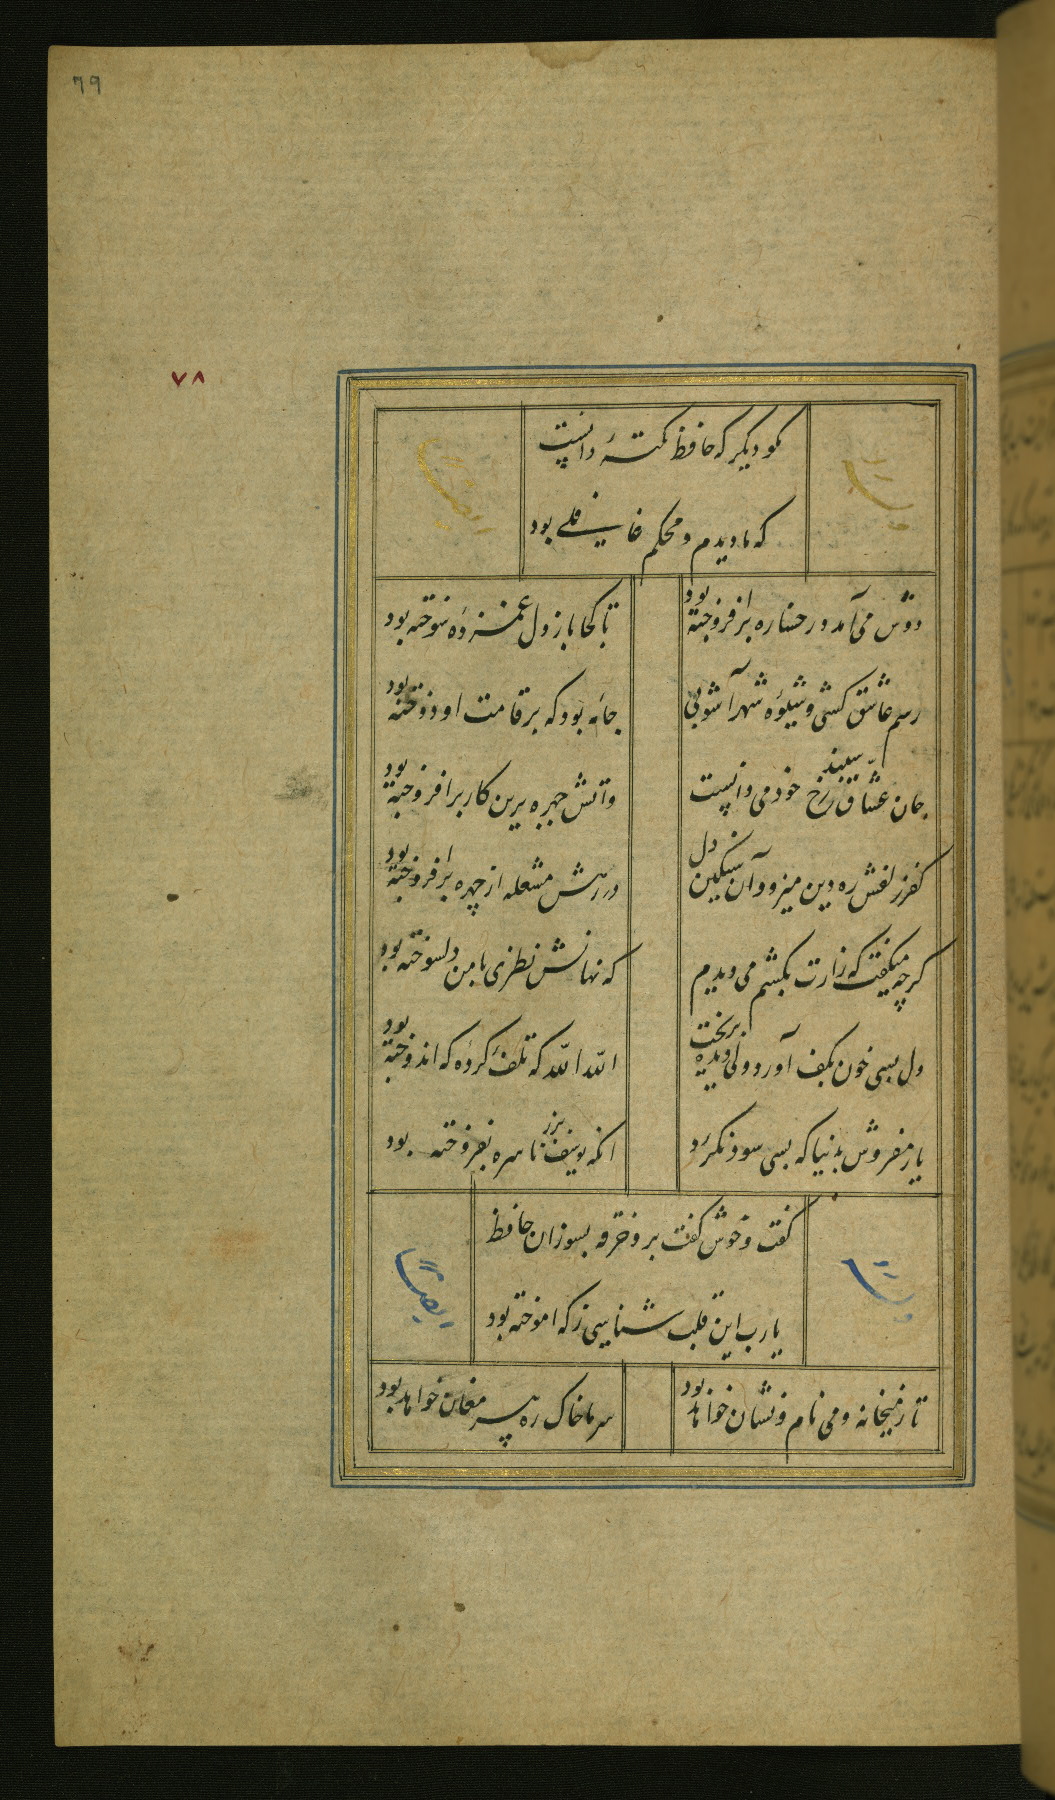 79
۷۸
مگو دیگر که حافظ نکتهٔ دانست
که ما دیدم و محکم غافلی بود
وله
ایضا
دوش می آمد و رخساره برافروخته بود
تا کجا باز دل غمزدهٔ سوخته بود
رسم عاشق کشی و شیوهٔ شهرآشوبی
جامهٔ بود که بر قامت او دوخته بود
جان عشاق سپند رخ خود می دانست
و آتش چهره برین کار برافروخته بود
کفر زلفش ره دین میزد و آن سنگین دل
در رهش مشعله از چهره برافروخته بود
گرچه میگفت که زارت بکشم می دیدم
که نهانش نظری با من دلسوخته بود
دل بسی خون بکف آورد ولی دیده بریخت
الله الله که تلف کرده که اندوخته بود
یار مفروش بدنیا که بسی سود نکرد
انکه یوسف بزر ناسره بفروخته بود
گفت و خوش گفت برو خرقه بسوزان حافظ
یارب این قلب شناسی ز که اموخته بود
وله
ایضا
تا ز میخانه و می نام و نشان خواهد بود
سر ما خاک ره پیر مغان خواهد بود